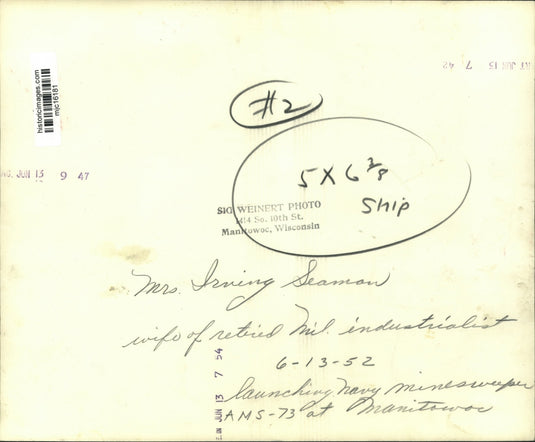 historicimages.com
mjc16181
RT JUN 13 7 42
#2
5 X 6 7/8
Ship
SIG WEINERT PHOTO
1414 So. 10th St.
Manitowoc, Wisconsin
JUN 13 9 47
Mrs. Irving Seaman
wife of retired Mil. industrialist
6-13-52
launching Navy minesweeper
AMS-73 at Manitowoc
JUN 13 7 54